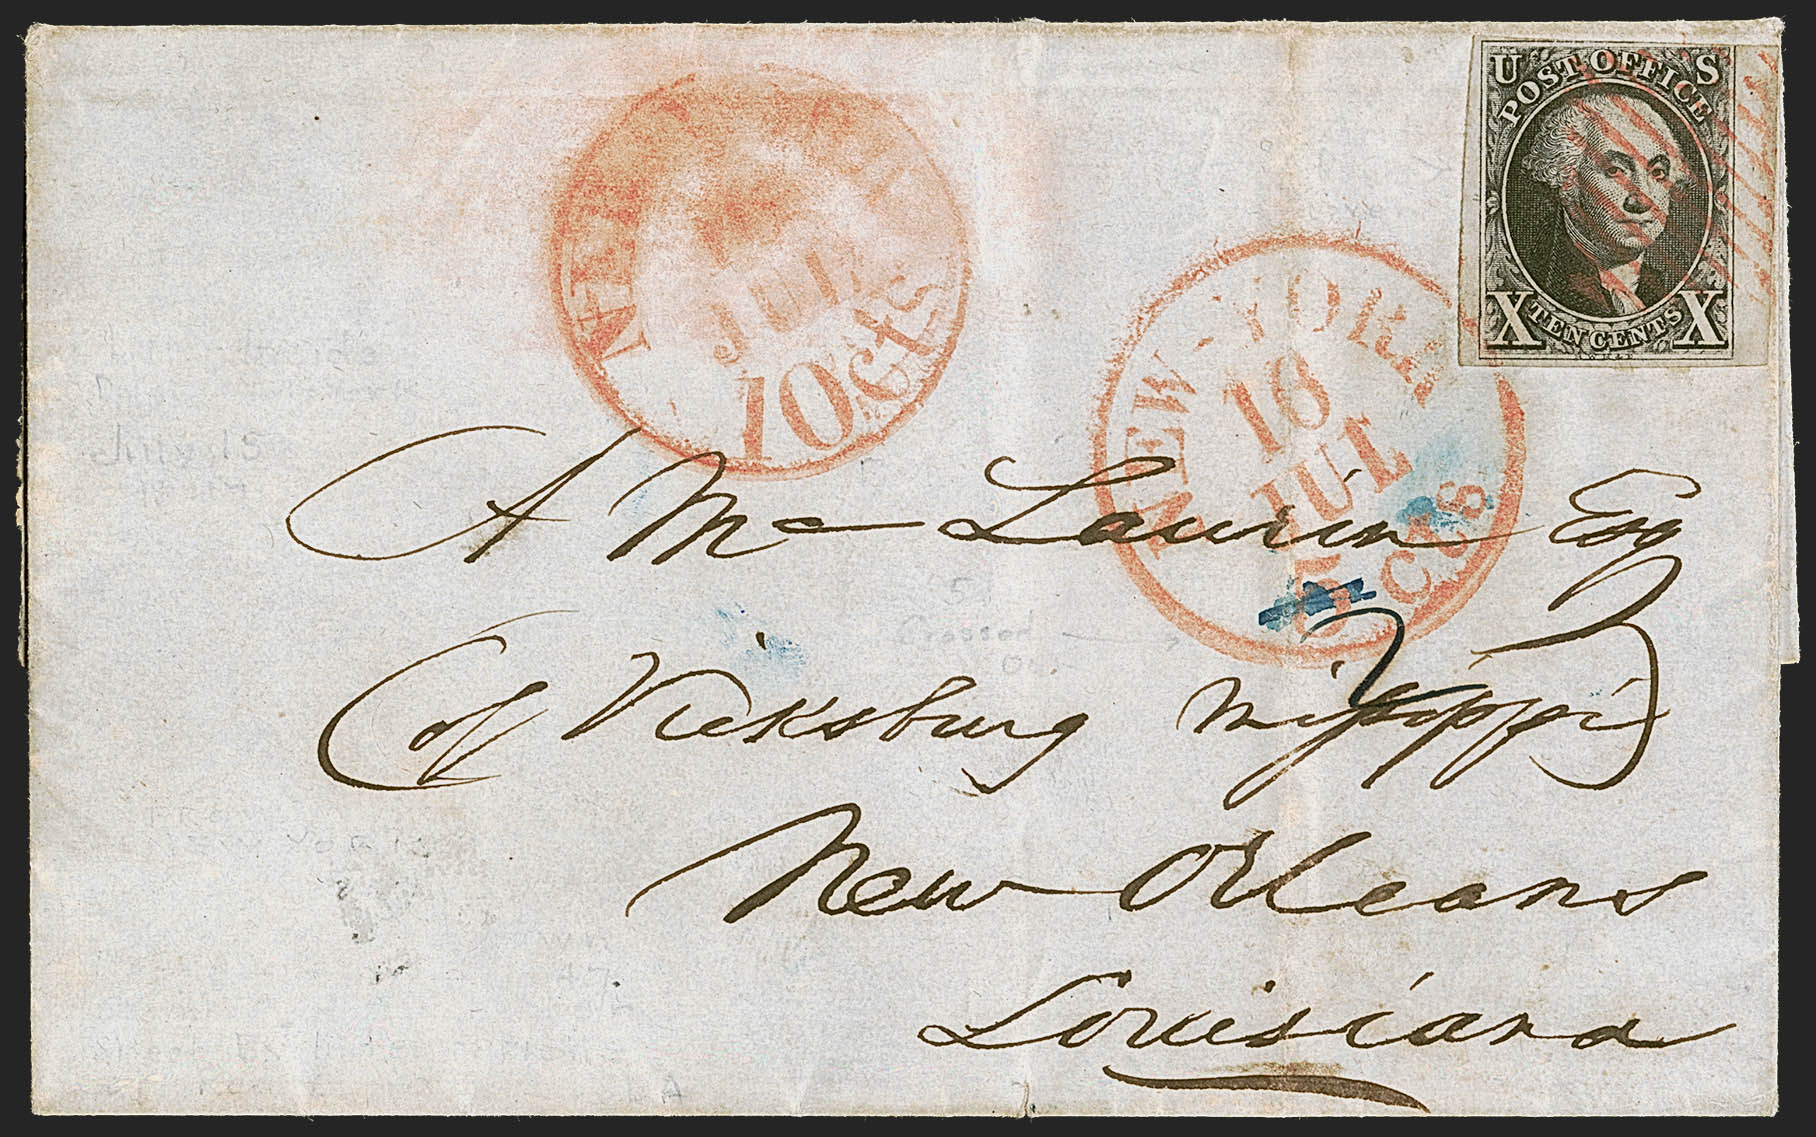 U S
POST OFFICE
X TEN CENTS X
NEW
JUL
10cts
NEW-YORK
16
JUL
5 cts
A Mc Laurin Esq
of Vicksburg Missisippi
New Orleans
Louisiana